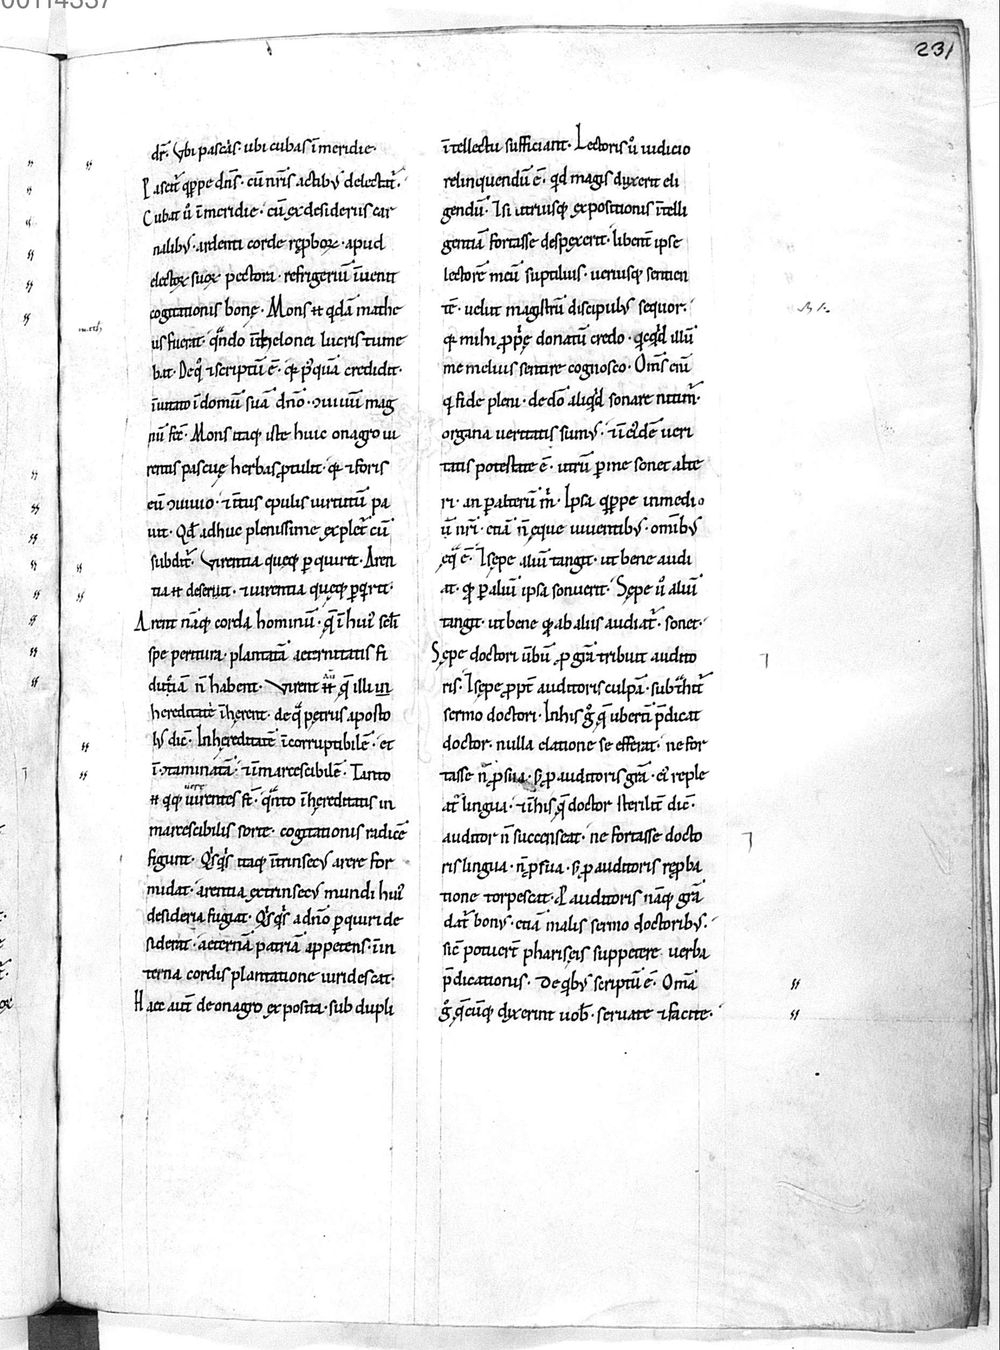 00114337
231
dr̄. Vbi pascas. ubi cubas ī meridie.
Pascit̄ q̄ppe dn̄s. cū nr̄is actibꝰ delectat̄.
Cubat ů ī meridie. cū ex desideriis car
nalibꝰ. ardenti corde rep̱boꝝ. apud
electoꝝ suoꝝ pectora. refrigeriū īuenit
cogitationis bonę. Mons ħ qdā mathe
us fuerat. qndo ī thelonei lucris tume
bat. De q̊ ⁊ scriptū ē. qꝫ p̊quā credidit.
īuitato ī domū suā dn̄o. ꝯuiuiū mag
nū fec̄. Mons itaqꝫ iste huic onagro ui
rentis pascuę herbas ꝓtulit. qꝫ ⁊ foris
eū ꝯuiuio. ⁊ ītus epulis uirtutū pa
uit. Qd̄ adhuc plenissime explet̄ cū
subdit̄. Virentia quęqꝫ ꝑquirit. Aren
tia ħ deserit. ⁊ uirentia quęqꝫ ꝑqrit.
Arent nāqꝫ corda hominū. q̄ ī huiꝰ sclī
spe peritura. plantata aeternitatis fi
dutiā n̄ habent. Virent ħ q̄ illi in
hereditate īherent. de q̄ petrus aposto
lꝰ dic̄. In hereditatē īcorruptibilē. et
ī ꝯtaminatā. ⁊ īmarcescibilē. Tanto
ħ qqꝫ uirentes st̄. qnto ī hereditatis in
marcescibilis sorte. cogitationis radicē
figunt. Qsqs itaqꝫ īt̄rinsecꝰ arere for
midat. arentia extrinsecꝰ mundi huiꝰ
desideria fugiat. Qsqs a dn̄o ꝑquiri de
siderat. aeternā patriā appetens. ī in
terna cordis plantatione uiridescat.
Haec aut̄ de onagro exposita. sub dupli
ītellectu sufficiant. Lectoris ů iudicio
relinquendū ē. qd magis duxerit eli
gendū. Si utriusqꝫ expositionis ītelli
gentiā fortasse despexerit. libent̄ ipse
lectorē meū suptilius. ueriusqꝫ sentien
tē. uelut magistrū discipulꝰ sequor.
qꝫ mihi ꝓprię donatū credo. qcqd illū
me melius sentire cognosco. Oms eni
q fide pleni. de dō aliqd sonare nitim̄.
organa ueritatis sumꝰ. ⁊ ī eiꝰdē ueri
tatis potestate ē. utrū ꝑ me sonet alte
ri. an ꝑ alterū m̄. Ipsa q̄ppe in medio
ū nr̄i. etiā n̄ ęque uiuentibꝰ. omibꝰ
ęq ē. ⁊ sępe aliū tangit. ut bene audi
at. qꝫ ꝑ aliū ipsa sonuerit. Sępe ů aliū
tangit. ut bene qꝫ ab aliis audiat̄. sonet.
Sępe doctori ūbū ꝓ grā tribuit̄ audito
ris. ⁊ sępe ꝓpt̄ auditoris culpā. subt̄hit̄
sermo doctori. In his g̊. q̄ ubertī p̄dicat
doctor. nulla elatione se efferat. ne for
tasse n̄ ꝓ sua. sꝫ ꝓ auditoris grā. eiꝰ reple
at̄ lingua. ⁊ ī his q̄ doctor sterilit̄ dic̄.
auditor n̄ succenseat. ne fortasse docto
ris lingua. n̄ ꝓ sua. sꝫ ꝓ auditoris rep̱ba
tione torpescat. Ꝓ auditoris nāqꝫ grā
dat̄ bonꝰ. etiā malis sermo doctoribꝰ.
sic̄ potuert̄ phariseis suppetere uerba
p̄dicationis. De qbꝰ scriptū ē. Omīa
g̊ q̄cūqꝫ dixerint uob̄. seruate ⁊ facite.